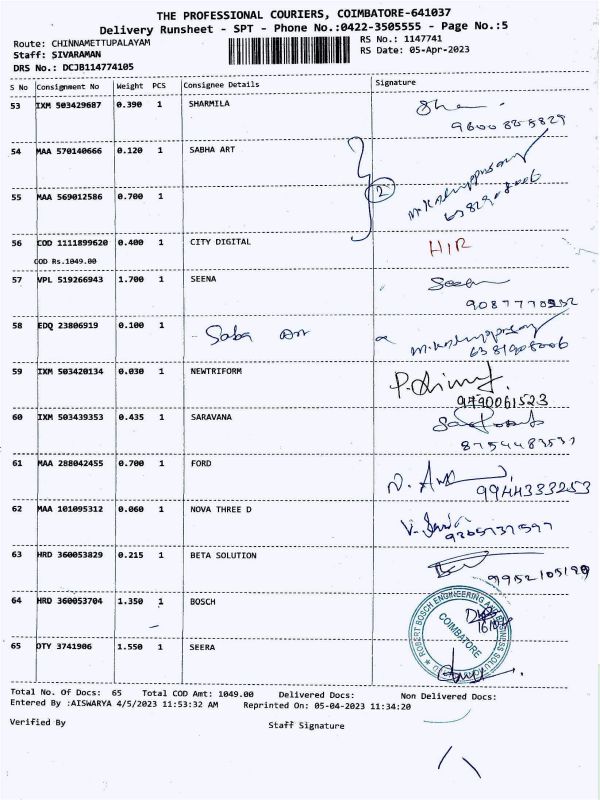 THE PROFESSIONAL COURIERS, COIMBATORE-641037
Delivery Runsheet - SPT - Phone No.:0422-3505555 - Page No.:5
Route: CHINNAMETTUPALAYAM
RS No.: 1147741
Staff: SIVARAMAN
RS Date: 05-Apr-2023
DRS No.: DCJB114774105
S No Consignment No Weight PCS Consignee Details Signature
53 IXM 503429687 0.390 1 SHARMILA Sha
9600825829
54 MAA 570140666 0.120 1 SABHA ART
55 MAA 569012586 0.700 1 2
6382908006
56 COD 1111899620 0.400 1 CITY DIGITAL HIR
COD Rs.1049.00
57 VPL 519266943 1.700 1 SEENA Seen
9087770932
58 EDQ 23806919 0.100 1 - Saba
6381908006
59 IXM 503420134 0.030 1 NEWTRIFORM
9790061523
60 IXM 503439353 0.435 1 SARAVANA
8754483537
61 MAA 288042455 0.700 1 FORD
9944333253
62 MAA 101095312 0.060 1 NOVA THREE D
9365737597
63 HRD 360053829 0.215 1 BETA SOLUTION
9952105199
64 HRD 360053704 1.350 1 BOSCH
ROBERT BOSCH ENGINEERING AND BUSINESS
COIMBATORE
65 DTY 3741906 1.550 1 SEERA
Total No. Of Docs: 65 Total COD Amt: 1049.00 Delivered Docs: Non Delivered Docs:
Entered By :AISWARYA 4/5/2023 11:53:32 AM Reprinted On: 05-04-2023 11:34:20
Verified By
Staff Signature